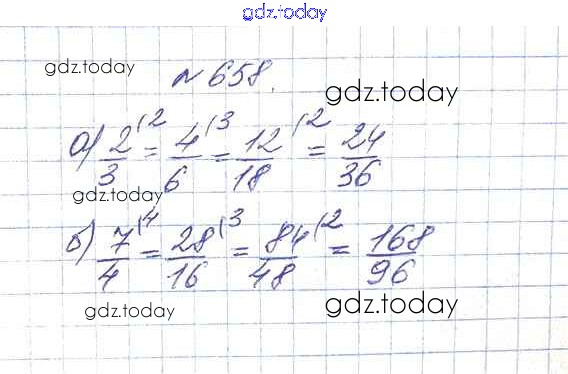 gdz.today
gdz.today
№ 658.
gdz.today
а) 2/3 (2 = 4/6 (3 = 12/18 (2 = 24/36
gdz.today
б) 7/4 (4 = 28/16 (3 = 84/48 (2 = 168/96
gdz.today
gdz.today